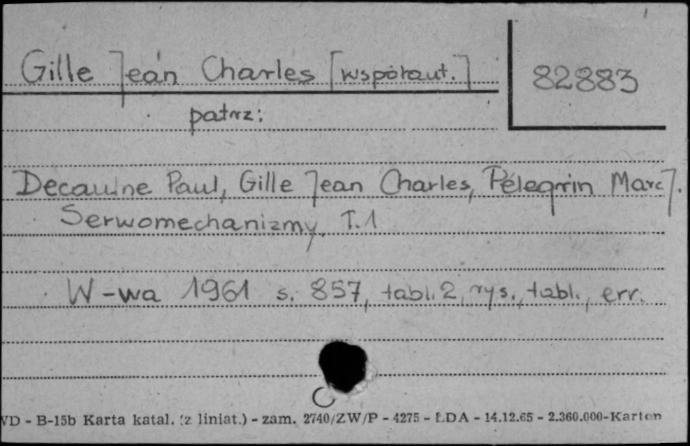 Gille Jean Charles [współaut.]
82883
patrz:
Decaulne Paul, Gille Jean Charles, Pélegrin Marc J.
Serwomechanizmy T.1
W-wa 1961 s. 857, tabl. 2, rys., tabl., err.
VD - B-15b Karta katal. (z liniat.) - zam. 2740/ZW/P - 4275 - ŁDA - 14.12.65 - 2.360.000-Karton